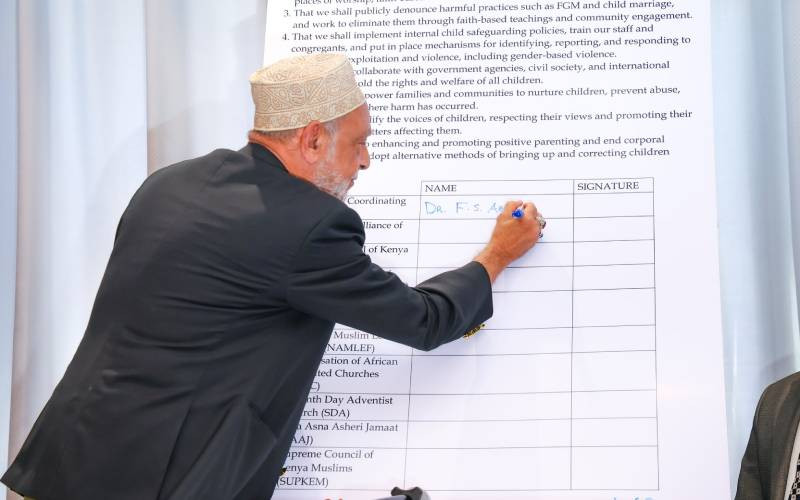 3. That we shall publicly denounce harmful practices such as FGM and child marriage,
and work to eliminate them through faith-based teachings and community engagement.
4. That we shall implement internal child safeguarding policies, train our staff and
congregants, and put in place mechanisms for identifying, reporting, and responding to
exploitation and violence, including gender-based violence.
collaborate with government agencies, civil society, and international
the rights and welfare of all children.
families and communities to nurture children, prevent abuse,
where harm has occurred.
the voices of children, respecting their views and promoting their
affecting them.
enhancing and promoting positive parenting and end corporal
adopt alternative methods of bringing up and correcting children
NAME SIGNATURE
Coordinating DR. F. S.
of
of Kenya
Muslim
(NAMLEF)
of African
Churches
Day Adventist
(SDA)
Asna Asheri Jamaat
Council of
Muslims
(SUPKEM)